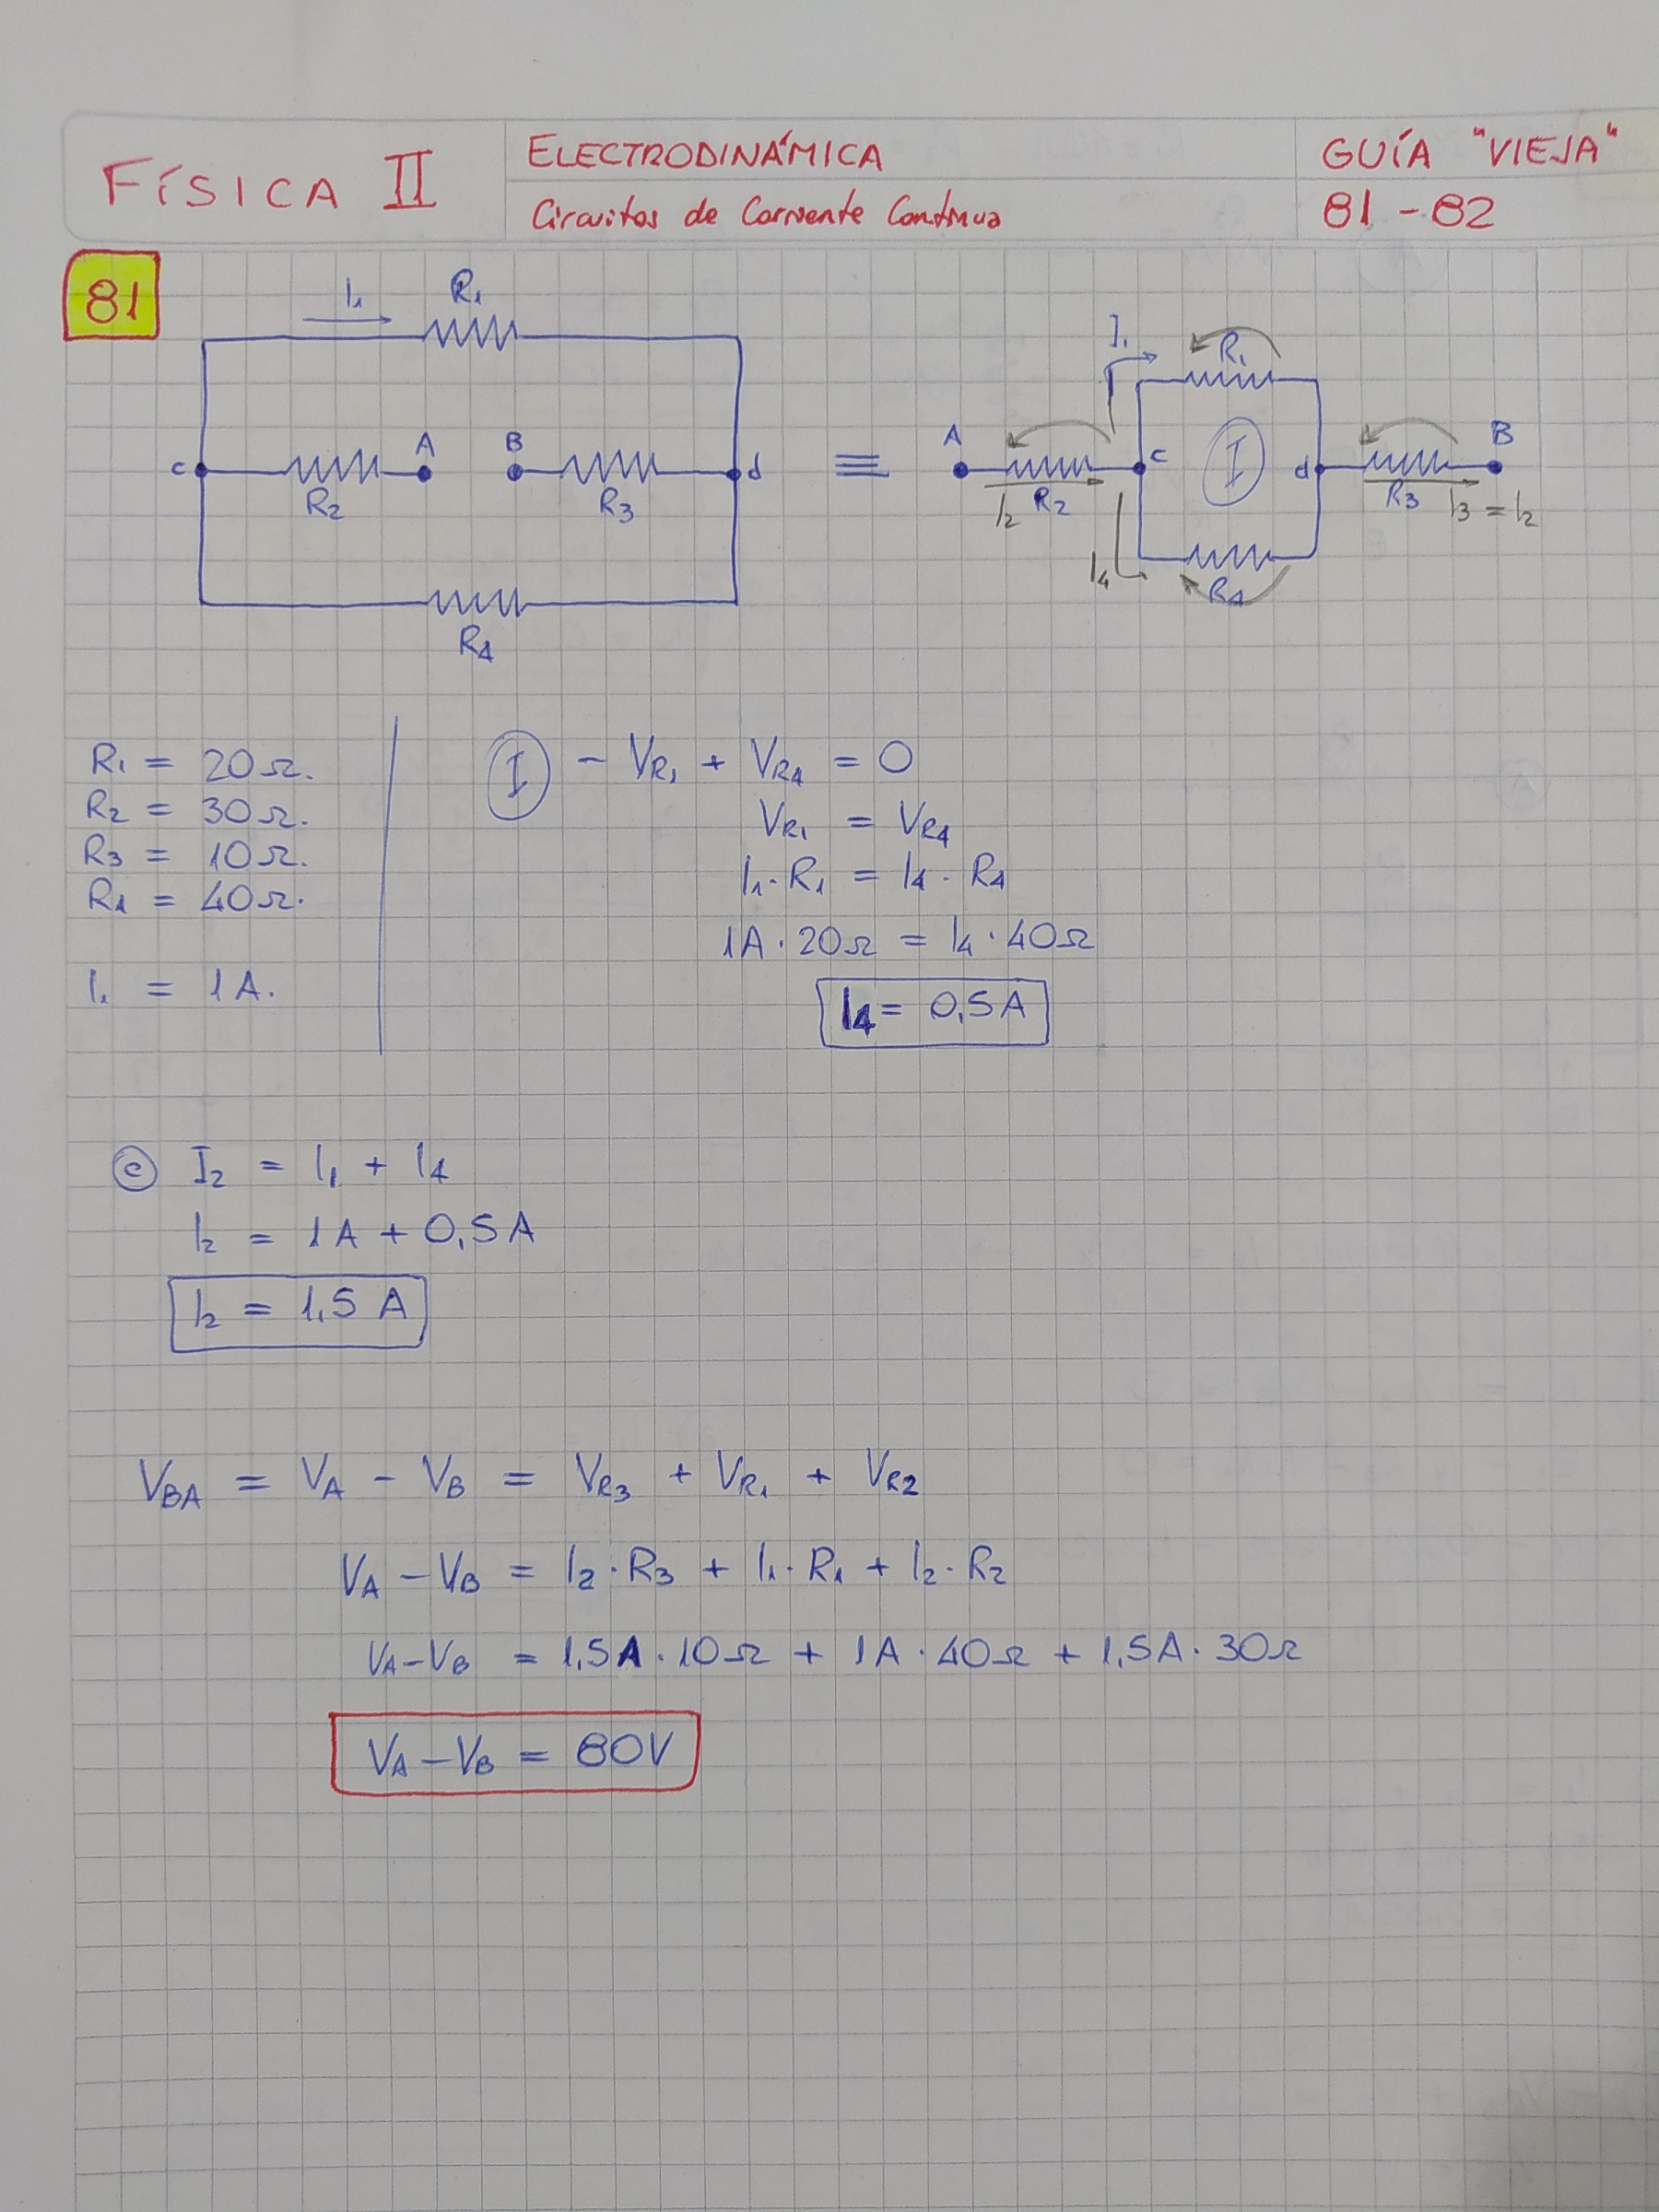 FÍSICA II
ELECTRODINÁMICA
Circuitos de Corriente Continua
GUÍA "VIEJA"
81 - 82
81
I₁ R₁
c R₂ A B R₃ d
R₄
≡
I₁ R₁
A I₂ R₂ c I d R₃ B I₃ = I₂
I₄ R₄
R₁ = 20Ω.
R₂ = 30Ω.
R₃ = 10Ω.
R₄ = 40Ω.
I₁ = 1A.
I - V_R₁ + V_R₄ = 0
V_R₁ = V_R₄
I₁ · R₁ = I₄ · R₄
1A · 20Ω = I₄ · 40Ω
I₄ = 0,5A
c I₂ = I₁ + I₄
I₂ = 1A + 0,5A
I₂ = 1,5 A
V_BA = V_A - V_B = V_R₃ + V_R₁ + V_R₂
V_A - V_B = I₂ · R₃ + I₁ · R₁ + I₂ · R₂
V_A - V_B = 1,5A · 10Ω + 1A · 40Ω + 1,5A · 30Ω
V_A - V_B = 80V